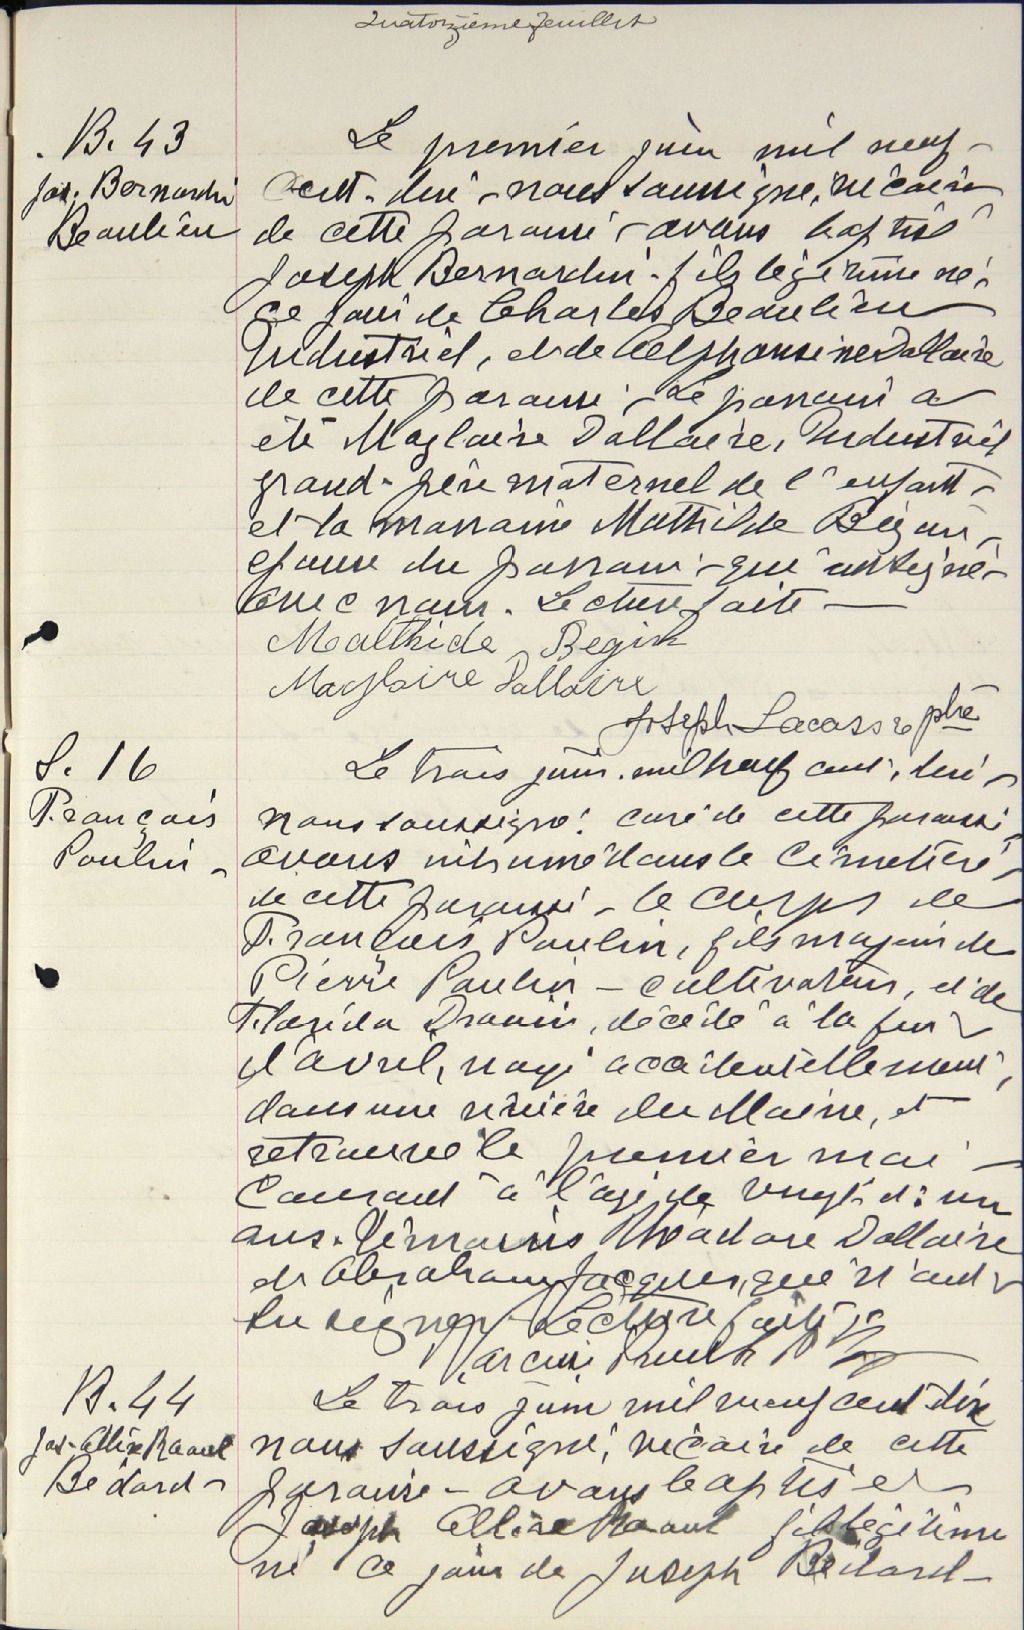 Quatorzième feuillet
B. 43
Jos. Bernardin
Beaulieu
Le premier juin mil neuf
cent dix, nous soussigné, vicaire
de cette paroisse, avons baptisé
Joseph Bernardin, fils légitime né
ce jour de Charles Beaulieu
Industriel, et de Alphonsine Dallaire
de cette paroisse. Le parrain a
été Magloire Dallaire, Industriel
grand-père maternel de l'enfant,
et la marraine Mathilde Bégin,
épouse du parrain, qui ont signé
avec nous. Lecture faite
Malthide Begin
Magloire Dallaire
Joseph Lacasse ptre
S. 16
François
Poulin
Le trois juin mil neuf cent dix,
nous soussigné curé de cette paroisse,
avons inhumé dans le cimetière
de cette paroisse, le corps de
François Poulin, fils majeur de
Pierre Poulin - cultivateur, et de
Florida Drouin, décédé à la fin
d'avril, noyé accidentellement,
dans une rivière du Maine, et
retrouvé le premier mai
courant à l'age de vingt et un
ans. Témoins Dallaire
et Abraham Jacques, qui n'ont
su signer. Lecture faite
B. 44
Jos. Raoul
Bédard
Le trois juin mil neuf cent dix
nous soussigné, vicaire de cette
paroisse - avons baptisé
Joseph Raoul fils légitime
né ce jour de Joseph Bédard